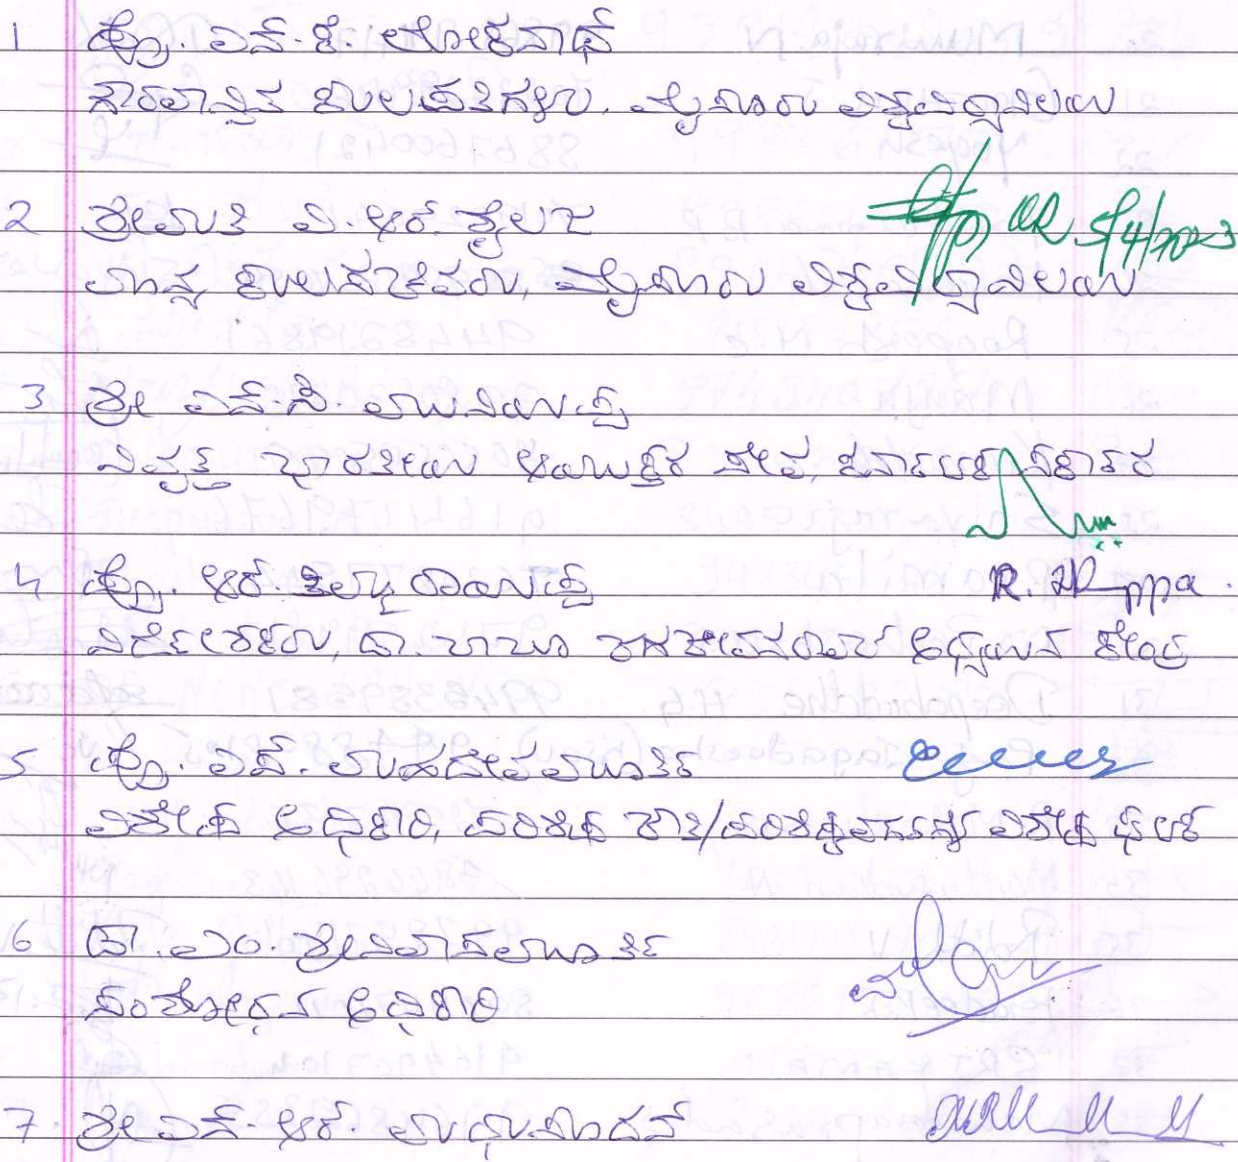 1 ಪ್ರೊ. ಎನ್. ಕೆ. ಲೋಕನಾಥ್
ಗೌರವಾನ್ವಿತ ಕುಲಪತಿಗಳು. ಮೈಸೂರು ವಿಶ್ವವಿದ್ಯಾನಿಲಯ
2 ಶ್ರೀಮತಿ ವಿ. ಆರ್. ಶೈಲಜ
5/4/2023
ಮಾನ್ಯ ಕುಲಸಚಿವರು, ಮೈಸೂರು ವಿಶ್ವವಿದ್ಯಾನಿಲಯ
3 ಶ್ರೀ ಎನ್. ಸಿ. ಮುನಿಯಪ್ಪ
ನಿವೃತ್ತ ಭಾರತೀಯ ಆಯುಕ್ತರ ಸೇವೆ, ಕರ್ನಾಟಕ ಸರ್ಕಾರ
4 ಪ್ರೊ. ಆರ್. ತಿಮ್ಮರಾಯಪ್ಪ
ನಿರ್ದೇಶಕರು, ಡಾ. ಬಾಬೂ ಜಗಜೀವನರಾಮ್ ಅಧ್ಯಯನ ಕೇಂದ್ರ
5 ಪ್ರೊ. ಎನ್. ಮಹದೇವಮೂರ್ತಿ
ವಿಶೇಷ ಅಧಿಕಾರಿ, ಪರಿಶಿಷ್ಟ ಜಾತಿ/ಪರಿಶಿಷ್ಟವರ್ಗಗಳ ವಿಶೇಷ ಘಟಕ
6 ಡಾ. ಎಂ. ಶ್ರೀನಿವಾಸಮೂರ್ತಿ
ಸಂಶೋಧನ ಅಧಿಕಾರಿ
7. ಶ್ರೀ ಎನ್. ಆರ್. ಮಧುಸೂದನ್